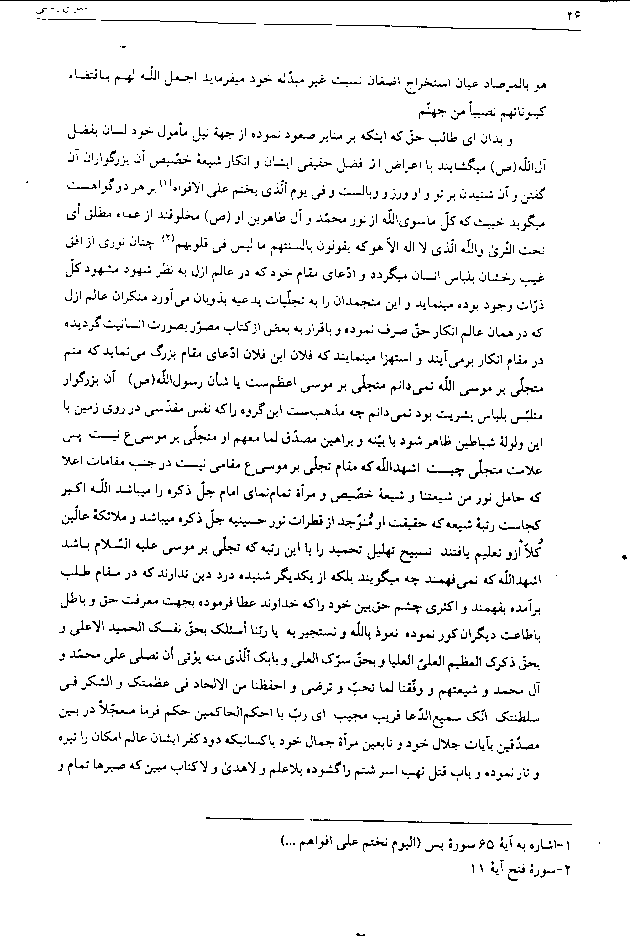 ۲۶
هو بالمرصاد عیان استخراج اضغان نسبت غیر مبدّله خود میفرماید اجعل اللّه لهم باقتضاء
کینوناتهم نصیباً من جهنّم
و بدان ای طالب حقّ که اینکه بر منابر صعود نموده از جهة نیل مأمول خود لسان بفضل
آل‌اللّه(ص) میگشایند با اعراض از فضل حقیقی ایشان و انکار شیعهٔ خصّیص آن بزرگواران آن
گفتن و آن شنیدن بر تو و او وزر و وبالست و فی یوم الّذی یختم علی الافواه(۱) بر هر دو گواهست
میگوید خبیث که کلّ ماسوی‌اللّه از نور محمّد و آل طاهرین او (ص) مخلوقند از عماء مطلق أی
تحت الثریٰ واللّه الّذی لا اله الاّ هو که یقولون بالسنتهم ما لیس فی قلوبهم(۲) چنان نوری از افق
غیب رخشان بلباس انسان میگردد و ادّعای مقام خود که در عالم ازل به نظر شهود مشهود کلّ
ذرّات وجود بوده مینماید و این منجمدان را به تجلّیات بدعیه بذوبان می‌آورد منکران عالم ازل
که در همان عالم انکار حقّ صرف نموده و باقرار به بعض از کتاب مصوّر بصورت انسانیت گردیده
در مقام انکار برمی‌آیند و استهزا مینمایند که فلان ابن فلان ادّعای مقام بزرگ می‌نماید که منم
متجلّی بر موسی اللّه نمی‌دانم متجلّی بر موسی اعظم‌ست یا شأن رسول‌اللّه(ص) آن بزرگوار
متلبّس بلباس بشریت بود نمی‌دانم چه مذهب‌ست این‌گروه راکه نفس مقدّسی در روی زمین با
این ولولهٔ شیاطین ظاهر شود با بیّنه و براهین مصدّق لما معهم او متجلّی بر موسی‌ع نیست پس
علامت متجلّی چیست اشهداللّه‌که مقام تجلّی بر موسی‌ع مقامی نیست در جنب مقامات اعلا
که حامل نور من شیعتنا و شیعهٔ خصّیص و مرآة تمام‌نمای امام جلّ ذکره را میباشد اللّه اکبر
کجاست رتبهٔ شیعه‌که حقیقت او مُتوّجد از قطرات نور حسینیه جلّ ذکره میباشد و ملائکهٔ عالّین
کُلّاً ازو تعلیم یافتند تسبیح تهلیل تحمید را با این رتبه که تجلّی بر موسی علیه السّلام باشد
اشهداللّه که نمی‌فهمند چه میگویند بلکه از یکدیگر شنیده درد دین ندارند که در مقام طلب
برآمده بفهمند و اکثری چشم حق‌بین خود راکه خداوند عطا فرموده بجهت معرفت حق و باطل
باطاعت دیگران کور نموده نعوذ باللّه و نستجیر به یا ربّنا أسئلک بحقّ نفسک الحمید الاعلی و
بحق ذکرک العظیم العلیّ العلیا و بحق سرّک العلی و بابک الّذی منه یؤتی أن تصلی علی محمّد و
آل محمد و شیعتهم و وفّقنا لما تحبّ و ترضی و احفظنا من الالحاد فی عظمتک و الشکر فی
سلطنتک انّک سمیع‌الدّعا قریب مجیب ای ربّ با احکم‌الحاکمین حکم فرما معجّلاً در بین
مصدّقین بآیات جلال خود و تابعین مرآة جمال خود باکسانیکه دود کفر ایشان عالم امکان را تیره
و تار نموده و باب قتل نهب اسر شتم را گشوده بلاعلم و لاهدیٰ و لاکتاب مبین که صبرها تمام و
۱-اشاره به آیهٔ ۶۵ سورهٔ یس (الیوم نختم علی افواهم ...)
۲-سورهٔ فتح آیهٔ ۱۱